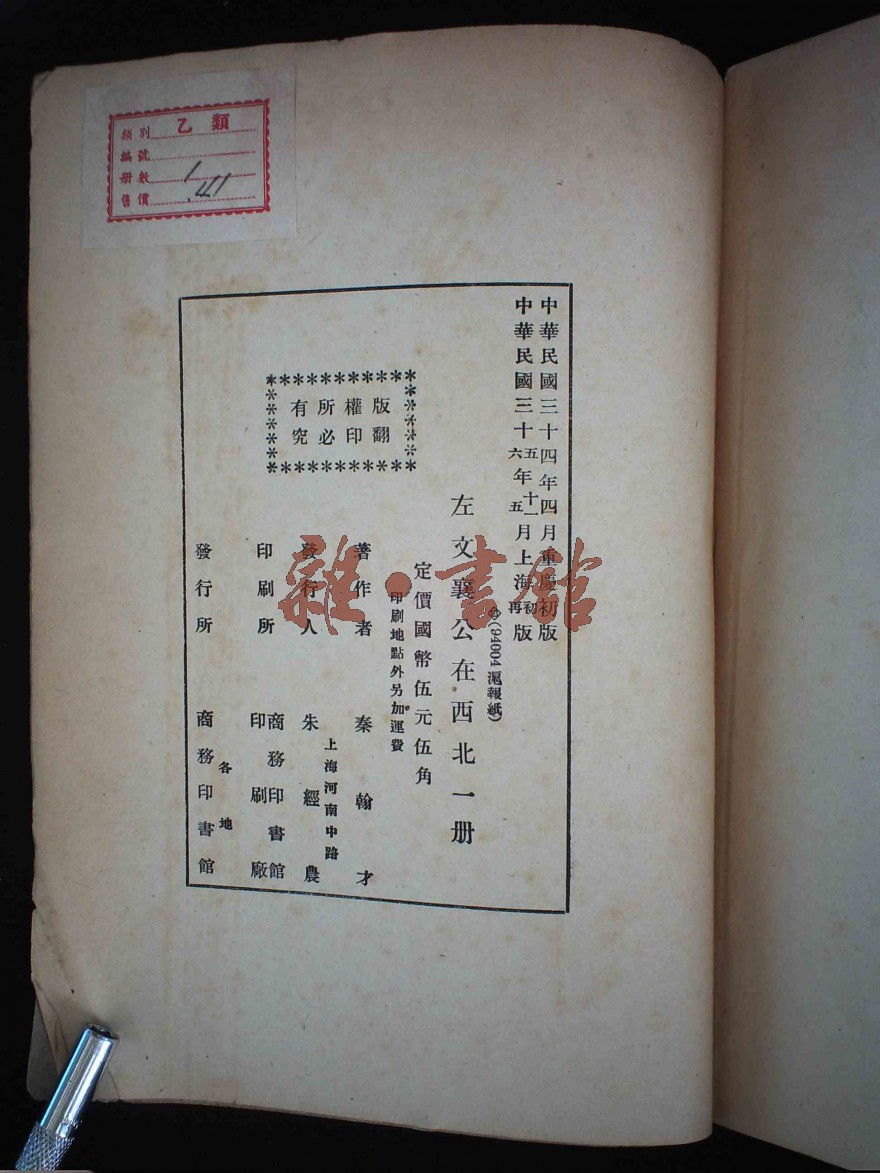 類別 乙類
編號
册數 1
售價 .41
中華民國三十四年四月重慶初版
中華民國三十五年十一月上海初版
六年五月再版
(94004滬報紙)
左文襄公在西北一册
定價國幣伍元伍角
印刷地點外另加運費
版權所有
翻印必究
著作者 秦翰才
上海河南中路
發行人 朱經農
印刷所 商務印書館印刷廠
各地
發行所 商務印書館
雜·書館